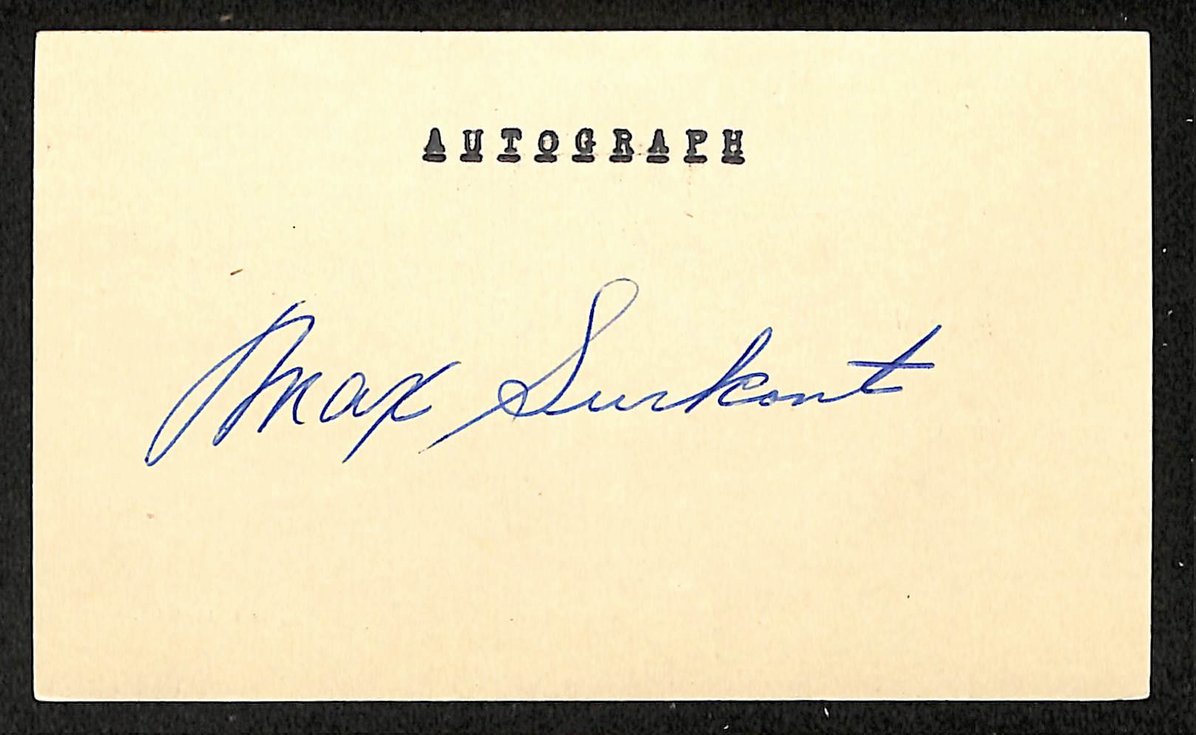 AUTOGRAPH
Max Surkont